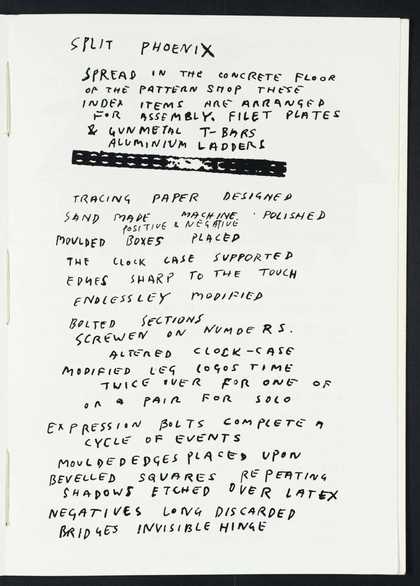 SPLIT PHOENIX
SPREAD IN THE CONCRETE FLOOR
OF THE PATTERN SHOP THESE
INDEX ITEMS ARE ARRANGED
FOR ASSEMBLY. FILET PLATES
& GUNMETAL T-BARS
ALUMINIUM LADDERS
TRACING PAPER DESIGNED
SAND MADE MACHINE · POLISHED
POSITIVE & NEGATIVE
MOULDED BOXES PLACED
THE CLOCK CASE SUPPORTED
EDGES SHARP TO THE TOUCH
ENDLESSLEY MODIFIED
BOLTED SECTIONS
SCREWEN ON NUMBERS.
ALTERED CLOCK-CASE
MODIFIED LEG LOGOS TIME
TWICE OVER FOR ONE OF
OR A PAIR FOR SOLO
EXPRESSION BOLTS COMPLETE A
CYCLE OF EVENTS
MOULDED EDGES PLACED UPON
BEVELLED SQUARES REPEATING
SHADOWS ETCHED OVER LATEX
NEGATIVES LONG DISCARDED
BRIDGES INVISIBLE HINGE